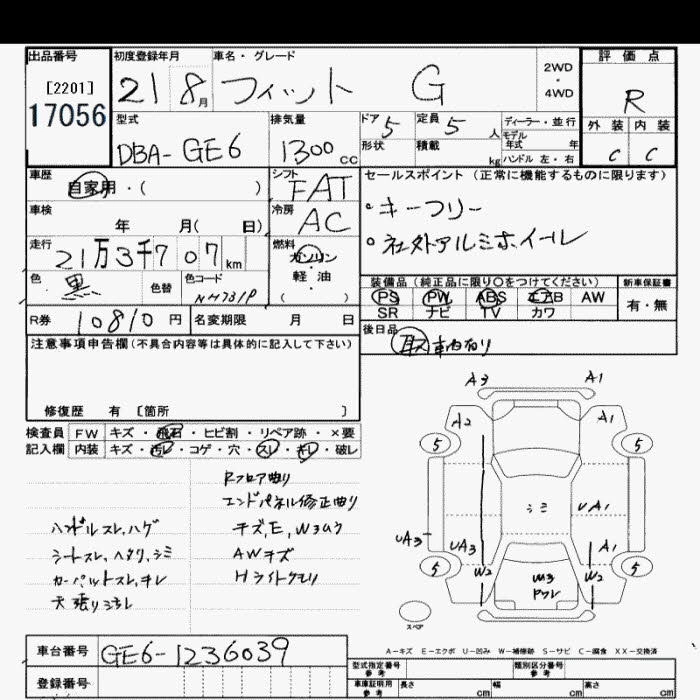 出品番号 初度登録年月 車名・グレード 評価点
[2201]
17056
21 8月 フィット G
2WD
・
4WD
R
型式 排気量 ドア 定員 ディーラー・並行
DBA-GE6 1300cc 5 5人
モデル年式 年
形状 積載 kg ハンドル 左・右
外装 内装
C C
車歴 シフト セールスポイント(正常に機能するものに限ります)
自家用・( ) FAT
。キーフリー
車検 冷房
年 月( 日) AC
。社外アルミホイール
走行 燃料
21万3千707km ガソリン
軽・油
・
( )
色 色替 色コード
黒 NH731P
装備品(純正品に限り○をつけてください) 新車保証書
PS PW ABS エアB AW 有・無
SR ナビ TV カワ
R券 10810円 名変期限 月 日
後日品
取 車内有り
注意事項申告欄(不具合内容等は具体的に記入して下さい)
修復歴 有 [箇所 ]
検査員 FW キズ・飛石・ヒビ割・リペア跡・×要
記入欄 内装 キズ・汚レ・コゲ・穴・スレ・キレ・破レ
Rフロア曲り
エンドパネル修正曲り
ハンドルスレ、ハゲ
キズ、E、W3ムラ
シートスレ、ヘタリ、シミ
AWキズ
カーペットスレ、キレ
Hライトクモリ
天張りヨゴレ
A3 A1
A2 A1
5 5
シミ
UA1
UA3 UA3 A1
5 5
W2 W3 W2
スペア
A－キズ E－エクボ U－凹み W－補修跡 S－サビ C－腐食 XX－交換済
車台番号 GE6-1236039
登録番号
型式指定番号 参考 類別区分番号 参考
車庫証明用 参考 長さ cm 幅 cm 高さ cm